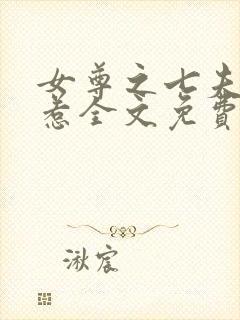 女尊之七夫
惹全文免費
湫宸